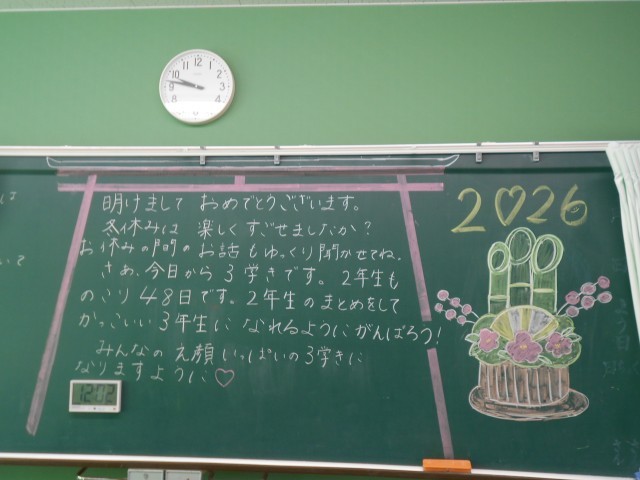 明けまして おめでとうございます。
冬休みは 楽しくすごせましたか？
お休みの間の お話もゆっくり聞かせてね。
さあ、今日から 3学きです。2年生も
のこり 48日です。2年生の まとめをして
かっこいい 3年生に なれるようにがんばろう！
みんなの え顔 いっぱいの 3学きに
なりますように♡
2♡26
12:02
12
1
2
3
4
5
6
7
8
9
10
11